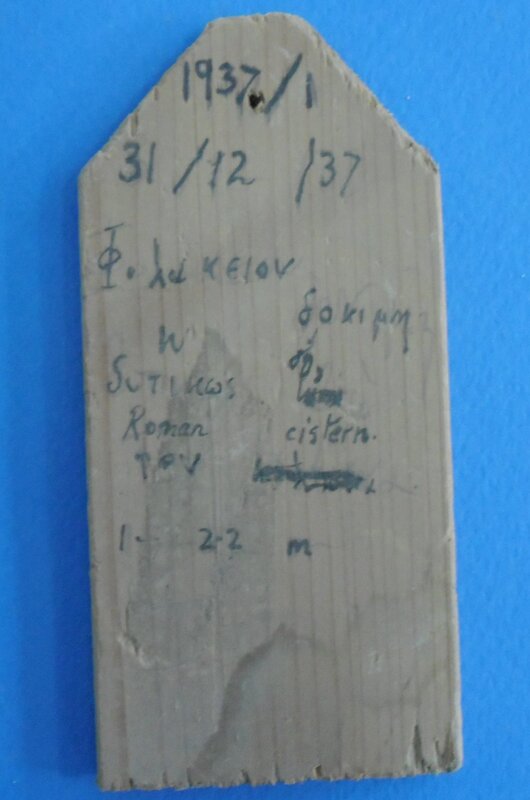 1937/1
31/12/37
Φυλακειον
δοκιμη
W
δυτικως
Roman cistern.
του
1 - 2.2 m